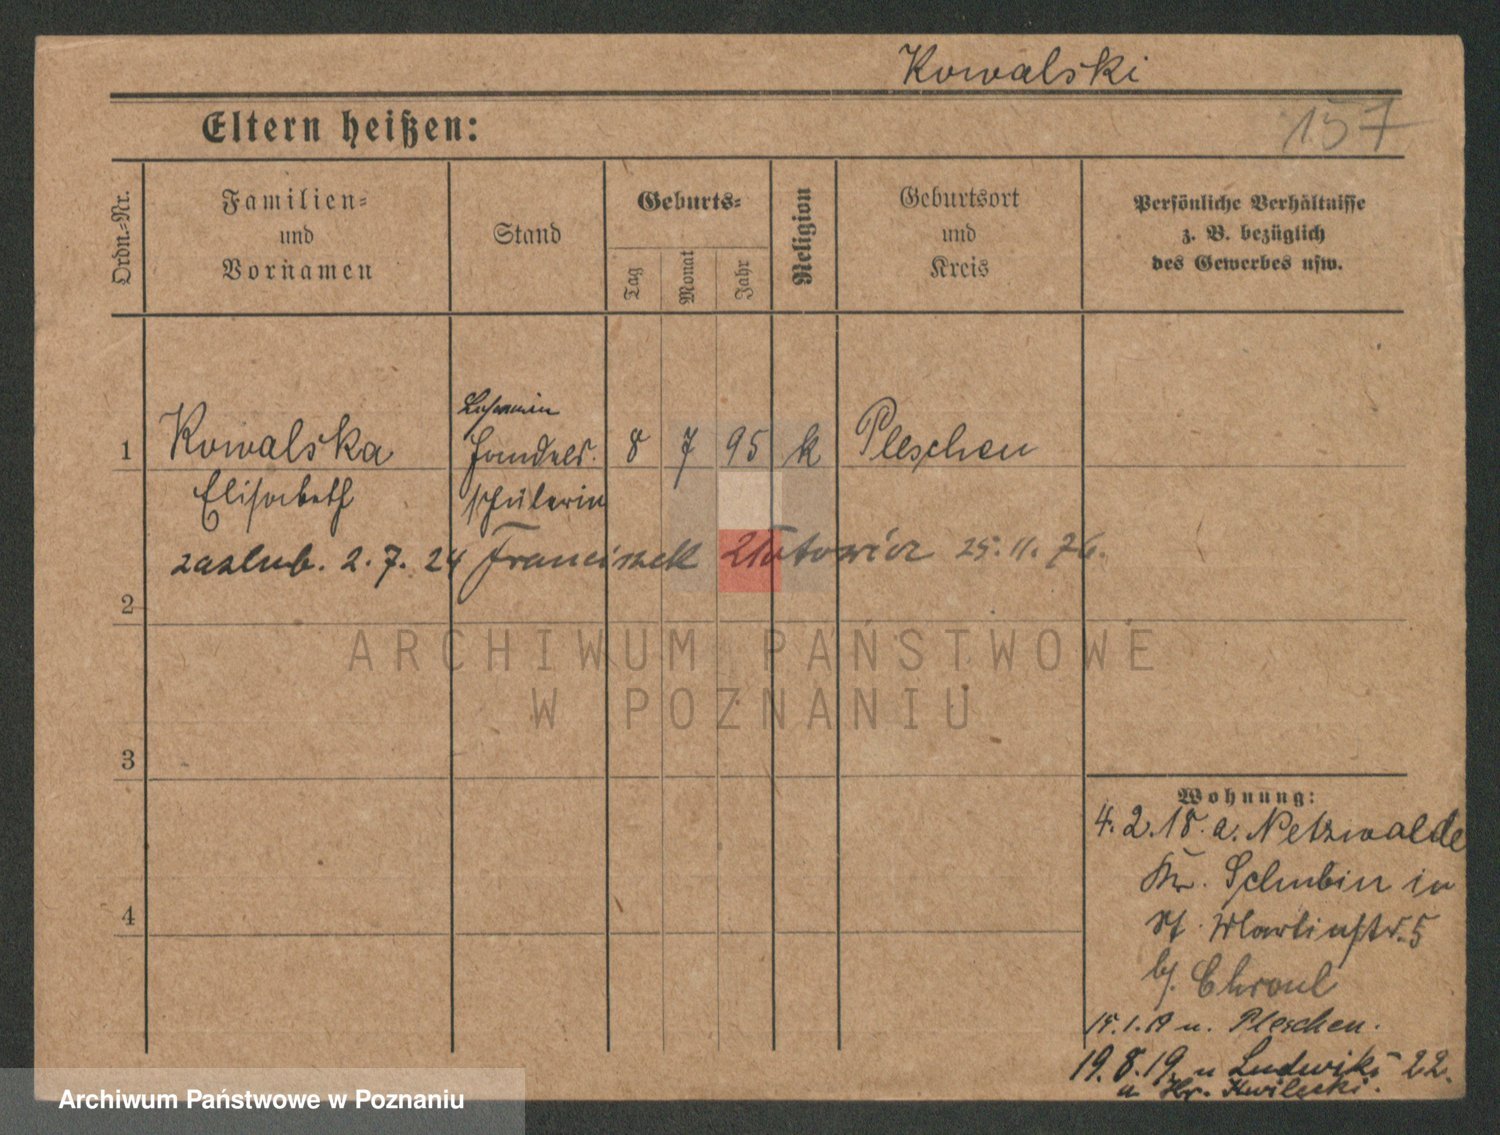 Kowalski
157
Eltern heißen:
Ordn.-Nr.
Familien-
und
Vornamen
Stand
Geburts-
Tag
Monat
Jahr
Religion
Geburtsort
und
Kreis
Persönliche Verhältnisse
z. B. bezüglich
des Gewerbes usw.
1 Kowalska Handels- 8 7 95 k Pleschen
Elisabeth schülerin
zaslub. 2.7.24 Franciszek 25.11.76.
2
ARCHIWUM PAŃSTWOWE
W POZNANIU
3
4
Wohnung:
4.2.18. a. Netzwalde
Kr. Schubin in
St. Martinstr. 5
b/. Chroul
15.1.19 n. Pleschen.
19.8.19. n Ludwiki 22.
Archiwum Państwowe w Poznaniu